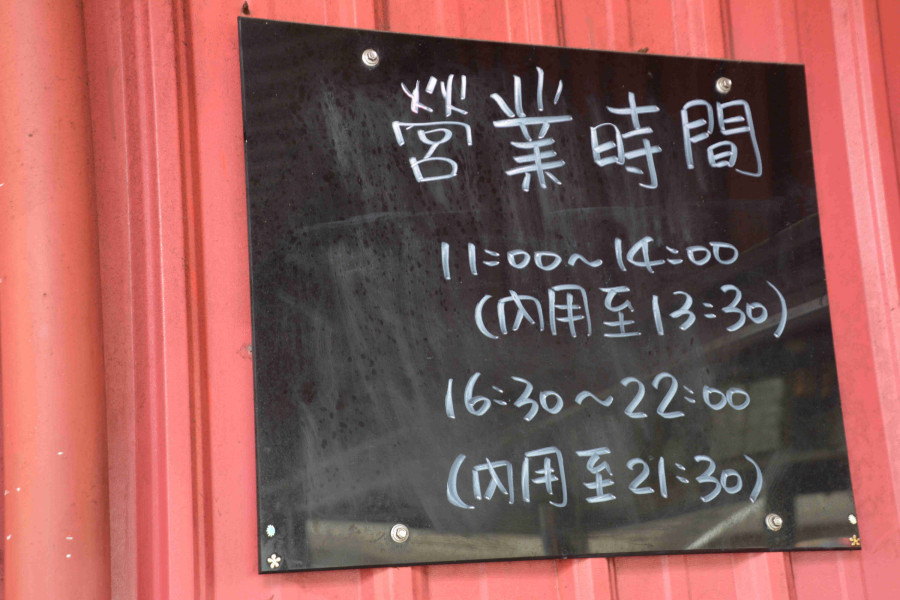 營業時間
11:00~14:00
(內用至13:30)
16:30~22:00
(內用至21:30)